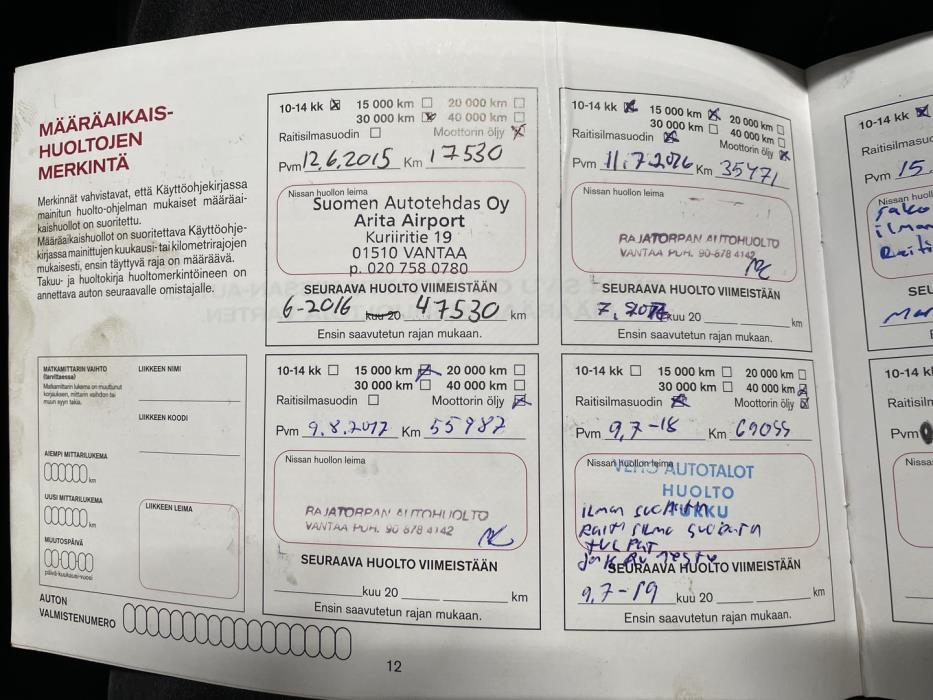 MÄÄRÄAIKAIS-
HUOLTOJEN
MERKINTÄ
Merkinnät vahvistavat, että Käyttöohjekirjassa
mainitun huolto-ohjelman mukaiset määräai-
kaishuollot on suoritettu.
Määräaikaishuollot on suoritettava Käyttöohje-
kirjassa mainittujen kuukausi- tai kilometrirajojen
mukaisesti, ensin täyttyvä raja on määräävä.
Takuu- ja huoltokirja huoltomerkintöineen on
annettava auton seuraavalle omistajalle.
10-14 kk 15 000 km 20 000 km
30 000 km 40 000 km
Raitisilmasuodin Moottorin öljy
Pvm 12.6.2015 Km 17530
Nissan huollon leima
Suomen Autotehdas Oy
Arita Airport
Kuriiritie 19
01510 VANTAA
p. 020 758 0780
SEURAAVA HUOLTO VIIMEISTÄÄN
6-2016 kuu 20 47530 km
Ensin saavutetun rajan mukaan.
10-14 kk 15 000 km 20 000 km
30 000 km 40 000 km
Raitisilmasuodin Moottorin öljy
Pvm 11.7.2016 Km 35471
Nissan huollon leima
RAJATORPAN AUTOHUOLTO
VANTAA PUH. 90-878 4142
SEURAAVA HUOLTO VIIMEISTÄÄN
7. kuu 20 km
Ensin saavutetun rajan mukaan.
10-14 kk
Raitisilmasuo
Pvm 15.
Nissan huol
ilman
Raiti
SEU
MATKAMITTARIN VAIHTO
(tarvittaessa)
Matkamittarin lukema on muuttunut
korjauksen, mittarin vaihdon tai
muun syyn takia.
AIEMPI MITTARILUKEMA
km
UUSI MITTARILUKEMA
km
MUUTOSPÄIVÄ
päivä-kuukausi-vuosi
LIIKKEEN NIMI
LIIKKEEN KOODI
LIIKKEEN LEIMA
10-14 kk 15 000 km 20 000 km
30 000 km 40 000 km
Raitisilmasuodin Moottorin öljy
Pvm 9.8.2017 Km 55987
Nissan huollon leima
RAJATORPAN AUTOHUOLTO
VANTAA PUH. 90 878 4142
SEURAAVA HUOLTO VIIMEISTÄÄN
kuu 20 km
Ensin saavutetun rajan mukaan.
10-14 kk 15 000 km 20 000 km
30 000 km 40 000 km
Raitisilmasuodin Moottorin öljy
Pvm 9.7-18 Km 69055
Nissan huollon leima
AUTOTALOT
HUOLTO
ilman
Jarruneste
SEURAAVA HUOLTO VIIMEISTÄÄN
9.7-19 kuu 20 km
Ensin saavutetun rajan mukaan.
10-14 k
Raitisiln
Pvm
Nissa
AUTON
VALMISTENUMERO
12